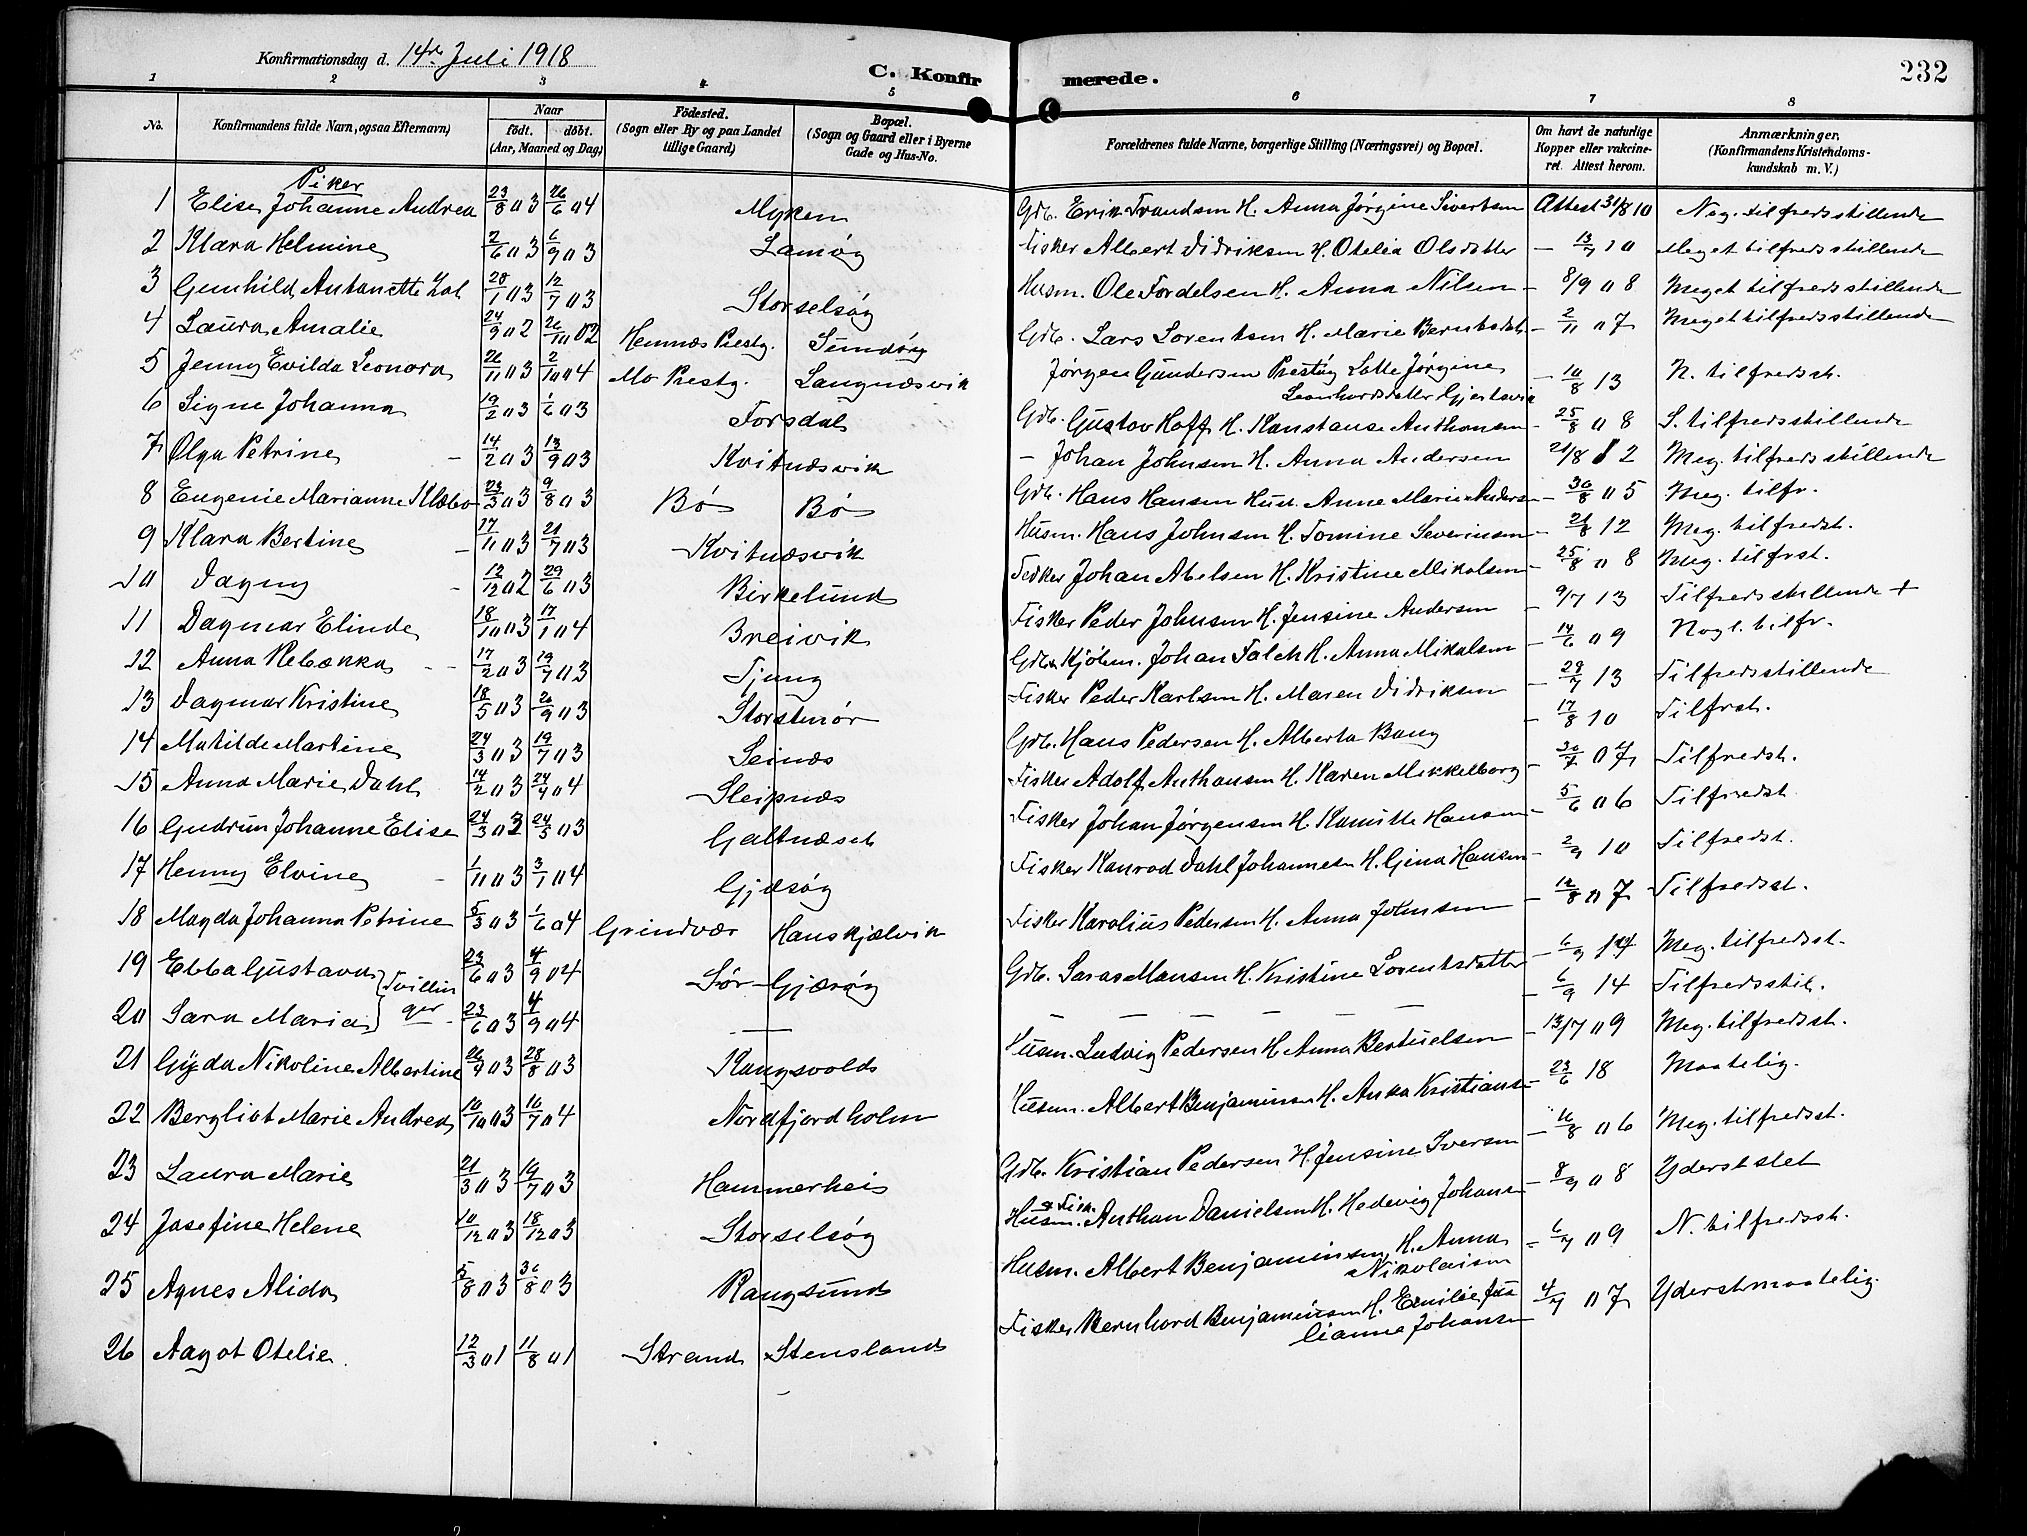 Konfirmationsdag d. 14de Juli 1918
C. Konfirmerede.
232
1 2 3 4 5 6 7 8
No. Konfirmandens fulde Navn, ogsaa Efternavn) Naar født. døbt. (Aar, Maaned og Dag) Födested. (Sogn eller By og paa Landet tillige Gaard) Bopæl. (Sogn og Gaard eller i Byerne Gade og Hus-No. Forældrenes fulde Navne, borgerlige Stilling (Næringsvei) og Bopæl. Om havt de naturlige Kopper eller vakcineret. Attest herom. Anmærkninger, (Konfirmandens Kristendomskundskab m. V.)
Piker
1 Elise Johanne Andrea 23/8 03 26/6 04 Myken Gdb. Erik Trandsen H. Anna Jørgine Sivertsen Attest 31/8 10 Meg. tilfredsstillende
2 Klara Helmine 2/6 03 6/9 03 Lamøy Fisker Albert Didriksen H. Otelia Olsdatter - 13/7 10 Meget tilfredsstillende
3 Gunhild Antonette 28/1 03 12/7 03 Storselsøy Husm. Ole Fordelsen H. Anna Nilsen - 8/9 08 Meget tilfredsstillende
4 Laura Amalie 24/9 02 26/10 02 Hemnæs Prestg. Sundøy Gdb. Lars Lorentsen H. Marie Berntsdatter - 2/11 07 Meget tilfredsstillende
5 Jenny Evilda Leonora 26/11 03 2/10 04 Mo Prestg. Langnæsvik Jørgen Gundersen Prestøy Lotte Jørgine Leonhardsdatter Gjertsvik - 10/8 13 N. tilfredsst.
6 Signe Johanna 19/2 03 1/6 03 Forsdal Gdb. Gustov Hoff H. Konstanse Anthonsen - 25/8 08 S. tilfredsstillende
7 Olga Petrine 14/2 03 13/9 03 Kvitnæsvik - Johan Johnsen H. Anna Andersen 21/8 12 Meg. tilfredsstillende
8 Eugenie Marianne Klæbo 23/3 03 9/8 03 Bø Bø Gdb. Hans Hansen Hust. Anne Marie Anders. - 30/8 05 Meg. tilfr.
9 Klara Bertine 17/11 03 21/7 03 Kvitnæsvik Husm. Hans Johnsen H. Tomine Severinsen - 21/8 12 Meg. tilfredst.
10 Dagny 12/12 02 29/6 03 Birkelund Fisker Johan Abelsen H. Kristine Mikalsen - 25/8 08 Meg. tilfrst.
11 Dagmar Elinde 18/10 03 17/1 04 Breivik Fisker Peder Johnsen H. Jensine Andersen - 9/7 13 Tilfredsstillende +
12 Anna Rebækka 17/2 03 19/7 03 Tjung Gdb. Kjøbm. Johan Falch H. Anna Mikalsen - 14/6 09 Nogl. tilfr.
13 Dagmar Kristine 18/5 03 20/9 03 Storstenør Fisker Peder Karlsen H. Maren Didriksen - 28/7 13 Tilfredsstillende
14 Matilde Martine 24/3 03 19/7 03 Seinæs Gdb. Hans Pedersen H. Alberta Bang - 17/8 10 Tilfrst.
15 Anna Marie Dahl 14/2 03 24/4 04 Sleipnæs Fisker Adolf Anthonsen H. Karen Mikkelborg - 30/7 07 Tilfredst.
16 Gudrun Johanne Elise 24/3 03 24/5 03 Galtnæset Fisker Johan Jørgensen H. Kamitte Hansen - 5/6 06 Tilfredst.
17 Henny Elvine 1/11 03 3/1 04 Gjæsøy Fisker Konrad Dahl Johannesen H. Gina Hansen - 2/9 10 Tilfredst.
18 Magda Johanna Petrine 5/3 03 1/6 04 Grindvær Hanskjælvik Fisker Karolius Pedersen H. Anna Johnsen - 12/8 07 Tilfredsst.
19 Ebba Gustava 23/6 03 4/9 04 Sør-Gjærøy Gdb. Saras Monsen H. Kristine Lorentsdatter - 6/9 14 Meg. tilfredsst.
Tvillinger
20 Sara Maria 23/6 03 4/9 04 — — — — — — - 6/9 14 Tilfredsstil.
21 Gyda Nikoline Albertine 26/4 03 28/8 03 Kongsvold Husm. Ludvig Pedersen H. Anna Bertuelsen - 13/7 09 Meg. tilfredsst.
22 Bergliot Marie Andrea 10/10 03 10/7 04 Nordfjordholm Husm. Albert Benjaminsen H. Anna Kristianse - 23/6 18 Maatelig.
23 Laura Marie 21/3 03 19/7 03 Hammerhei Gdb. Kristian Pedersen H. Jensine Iversen - 16/8 06 Meg. tilfredsst.
24 Josefine Helene 10/12 03 18/12 03 Storselsøy Husm. & Fisk. Anthon Danielsen H. Hedevig Johanse - 8/9 08 Yderst slet
25 Agnes Alida 5/8 03 30/8 03 Rangsund Husm. Albert Benjaminsen H. Anna Nikolaisen - 6/7 09 N. tilfredsst.
26 Aagot Otelie 12/3 01 11/8 01 Strand Stensland Fisker Bernhard Benjaminsen H. Emilie Julianne Johansen 4/7 07 Yderst maatelig.